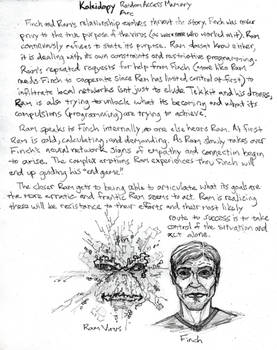 Kaleidopy Random Access Memory
Arc
Finch and Ram's relationship evolves through the story. Finch was never
privy to the true purpose of the virus (no one was who worked on it). Ram
continuously refuses to state its purpose. Ram doesn't know either,
it is dealing with its own constraints and restrictive programming.
Ram's repeated requests for help from Finch (more like Ram
needs Finch to cooperate since Ram has limited control at first) to
infiltrate local networks isn't just to elude Tekkit and his drones,
Ram is also trying to unlock what its becoming and admit its
compulsions (programming) are trying to achieve.
Ram speaks to Finch internally, no one else hears Ram. At first
Ram is cold, calculating, and demanding. As Ram slowly takes over
Finch's neural network signs of empathy and connection begin
to arise. The complex emotions Ram experiences thru Finch will
end up guiding his "end game."
The closer Ram gets to being able to articulate what its goals are
the more erratic and frantic Ram seems to act. Ram is realizing
there will be resistance to their efforts and their most likely
route to success is to take
control of the situation and
act alone.
Ram Virus
Finch